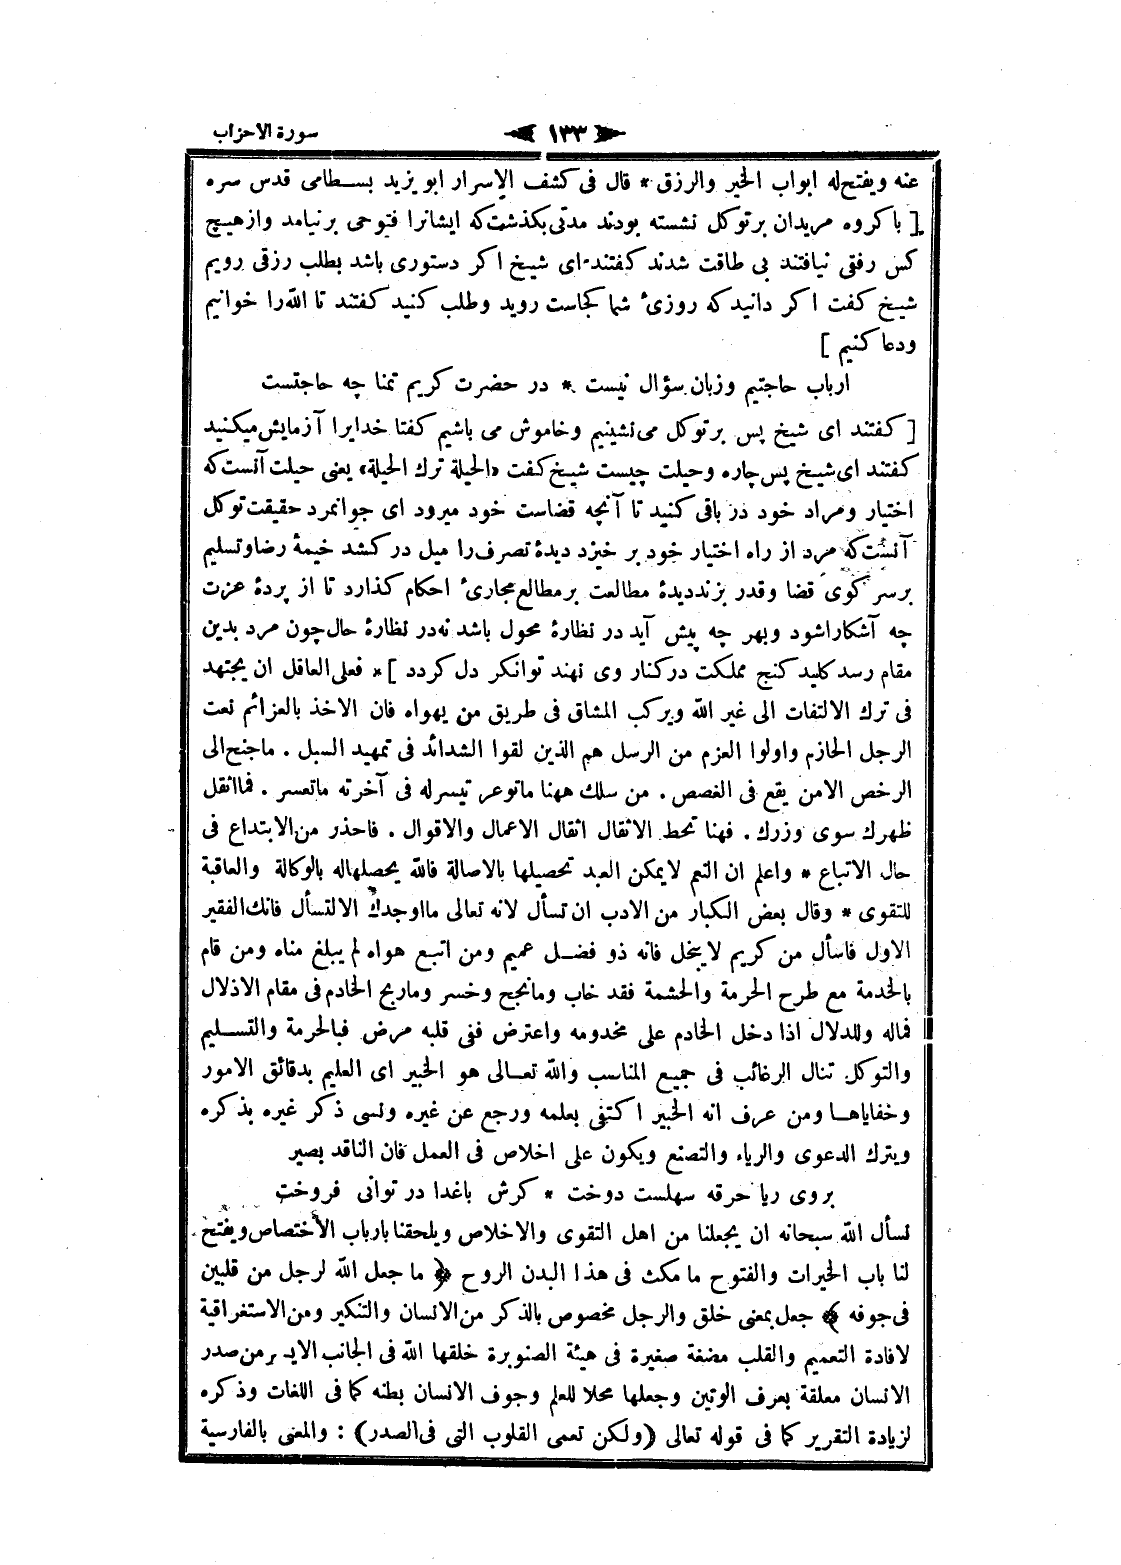 سورة الاحزاب
١٣٣
عنه ويفتح له ابواب الخير والرزق * قال فى كشف الاسرار ابو يزيد بسطامى قدس سره
[ با كروه مريدان بر توكل نشسته بودند مدتى بكذشت كه ايشانرا فتوحى برنيامد واز هيچ
كس رفقى نيافتند بى طاقت شدند كفتند اى شيخ اكر دستورى باشد بطلب رزقى رويم
شيخ كفت اكر دانيد كه روزىء شما كجاست رويد وطلب كنيد كفتند تا الله را خوانيم
ودعا كنيم ]
ارباب حاجتيم وزبان سؤال نيست * در حضرت كريم تمنا چه حاجتست
[ كفتند اى شيخ پس بر توكل مى نشينيم وخاموش مى باشيم كفتا خدايرا آزمايش ميكنيد
كفتند اى شيخ پس چاره وحيلت چيست شيخ كفت «الحيلة ترك الحيلة» يعنى حيلت آنست كه
اختيار ومراد خود در باقى كنيد تا آنچه قضاست خود ميرود اى جوانمرد حقيقت توكل
آنست كه مرد از راه اختيار خود بر خيزد ديدهٔ تصرف را ميل در كشد خيمهٔ رضا وتسليم
برسر كوى قضا وقدر بزند ديدهٔ مطالعت بر مطالع مجارىء احكام كذارد تا از پردهٔ عزت
چه آشكارا شود وبهر چه پيش آيد در نظارهٔ محول باشد نه در نظارهٔ حال چون مرد بدين
مقام رسد كليد كنج مملكت در كنار وى نهند توانكر دل كردد ] * فعلى العاقل ان يجتهد
فى ترك الالتفات الى غير الله ويركب المشاق فى طريق من يهواه فان الاخذ بالعزائم نعت
الرجل الحازم واولوا العزم من الرسل هم الذين لقوا الشدائد فى تمهيد السبل . ما جنح الى
الرخص الا من يقع فى الغصص . من سلك ههنا ما توعر تيسر له فى آخرته ما تعسر . فما اثقل
ظهرك سوى وزرك . فهنا تحط الاثقال اثقال الاعمال والاقوال . فاحذر من الابتداع فى
حال الاتباع * واعلم ان التى لا يمكن العبد تحصيلها بالاصالة فالله يحصلها له بالوكالة والعاقبة
للتقوى * وقال بعض الكبار من الادب ان تسأل لانه تعالى ما اوجدك الا لتسأل فانك الفقير
الاول فاسأل من كريم لا يبخل فانه ذو فضل عميم ومن اتبع هواه لم يبلغ مناه ومن قام
بالخدمة مع طرح الحرمة والحشمة فقد خاب وما نجح وخسر وما ربح الخادم فى مقام الاذلال
فماله وللدلال اذا دخل الخادم على مخدومه واعترض ففى قلبه مرض فبالحرمة والتسليم
والتوكل تنال الرغائب فى جميع المناسب والله تعالى هو الخبير اى العليم بدقائق الامور
وخفاياها ومن عرف انه الخبير اكتفى بعلمه ورجع عن غيره ونسى ذكر غيره بذكره
ويترك الدعوى والرياء والتصنع ويكون على اخلاص فى العمل فان الناقد بصير
بروى ريا خرقه سهلست دوخت * كرش باخدا در توانى فروخت
نسأل الله سبحانه ان يجعلنا من اهل التقوى والاخلاص ويلحقنا بارباب الاختصاص ويفتح
لنا باب الخيرات والفتوح ما مكث فى هذا البدن الروح ﴿ ما جعل الله لرجل من قلبين
فى جوفه ﴾ جعل بمعنى خلق والرجل مخصوص بالذكر من الانسان والتنكير ومن الاستغراقية
لافادة التعميم والقلب مضغة صغيرة فى هيئة الصنوبرة خلقها الله فى الجانب الايسر من صدر
الانسان معلقة بعرف الوتين وجعلها محلا للعلم وجوف الانسان بطنه كما فى اللغات وذكره
لزيادة التقرير كما فى قوله تعالى (ولكن تعمى القلوب التى فى الصدر) : والمعنى بالفارسية